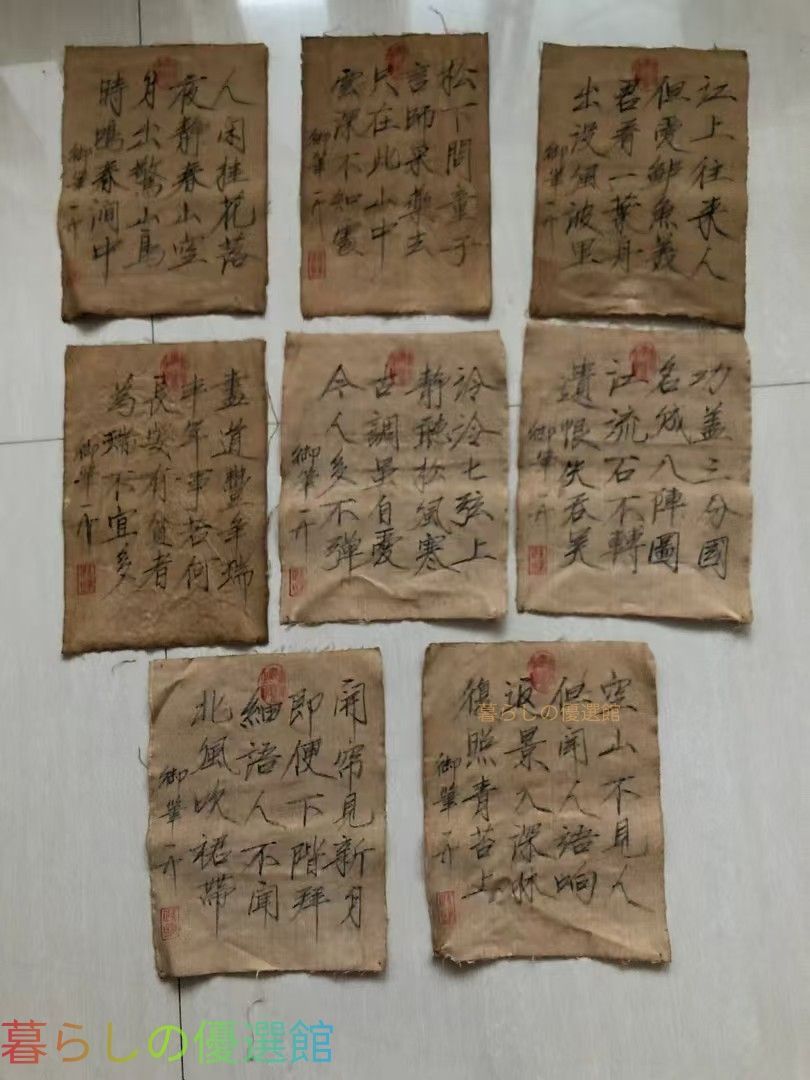 人闲挂花落
夜静春山空
月出驚山鳥
時鳴春澗中
御筆一开
松下問童子
言師采藥去
只在此山中
雲深不知處
御筆一开
江上往来人
但愛鱸魚美
君看一葉舟
出没風波里
御筆一开
盡道豐年瑞
丰年事若何
長安有貧者
為瑞不宜多
御筆一开
泠泠七弦上
静聽松風寒
古調虽自愛
今人多不彈
御筆一开
功蓋三分國
名成八陣圖
江流石不轉
遺恨失吞吴
御筆一开
開帘見新月
即便下階拜
細語人不聞
北風吹裙帶
御筆一开
空山不見人
但聞人語响
返景入深林
復照青苔上
御筆一开
暮らしの優選館
暮らしの優選館